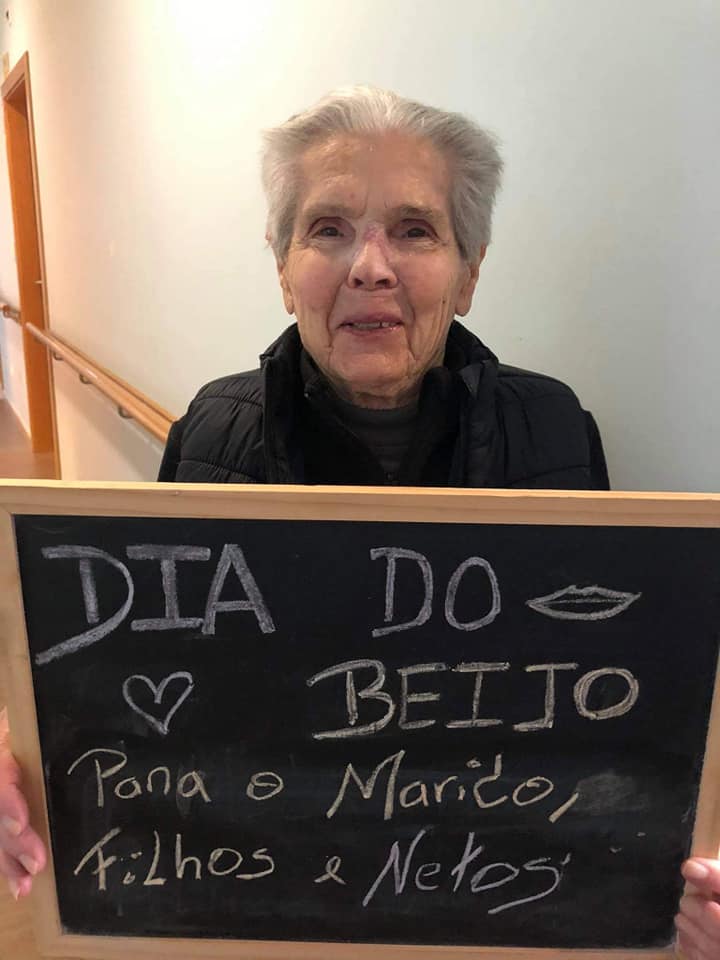 DIA DO
BEIJO
Para o Marido,
Filhos e Netos